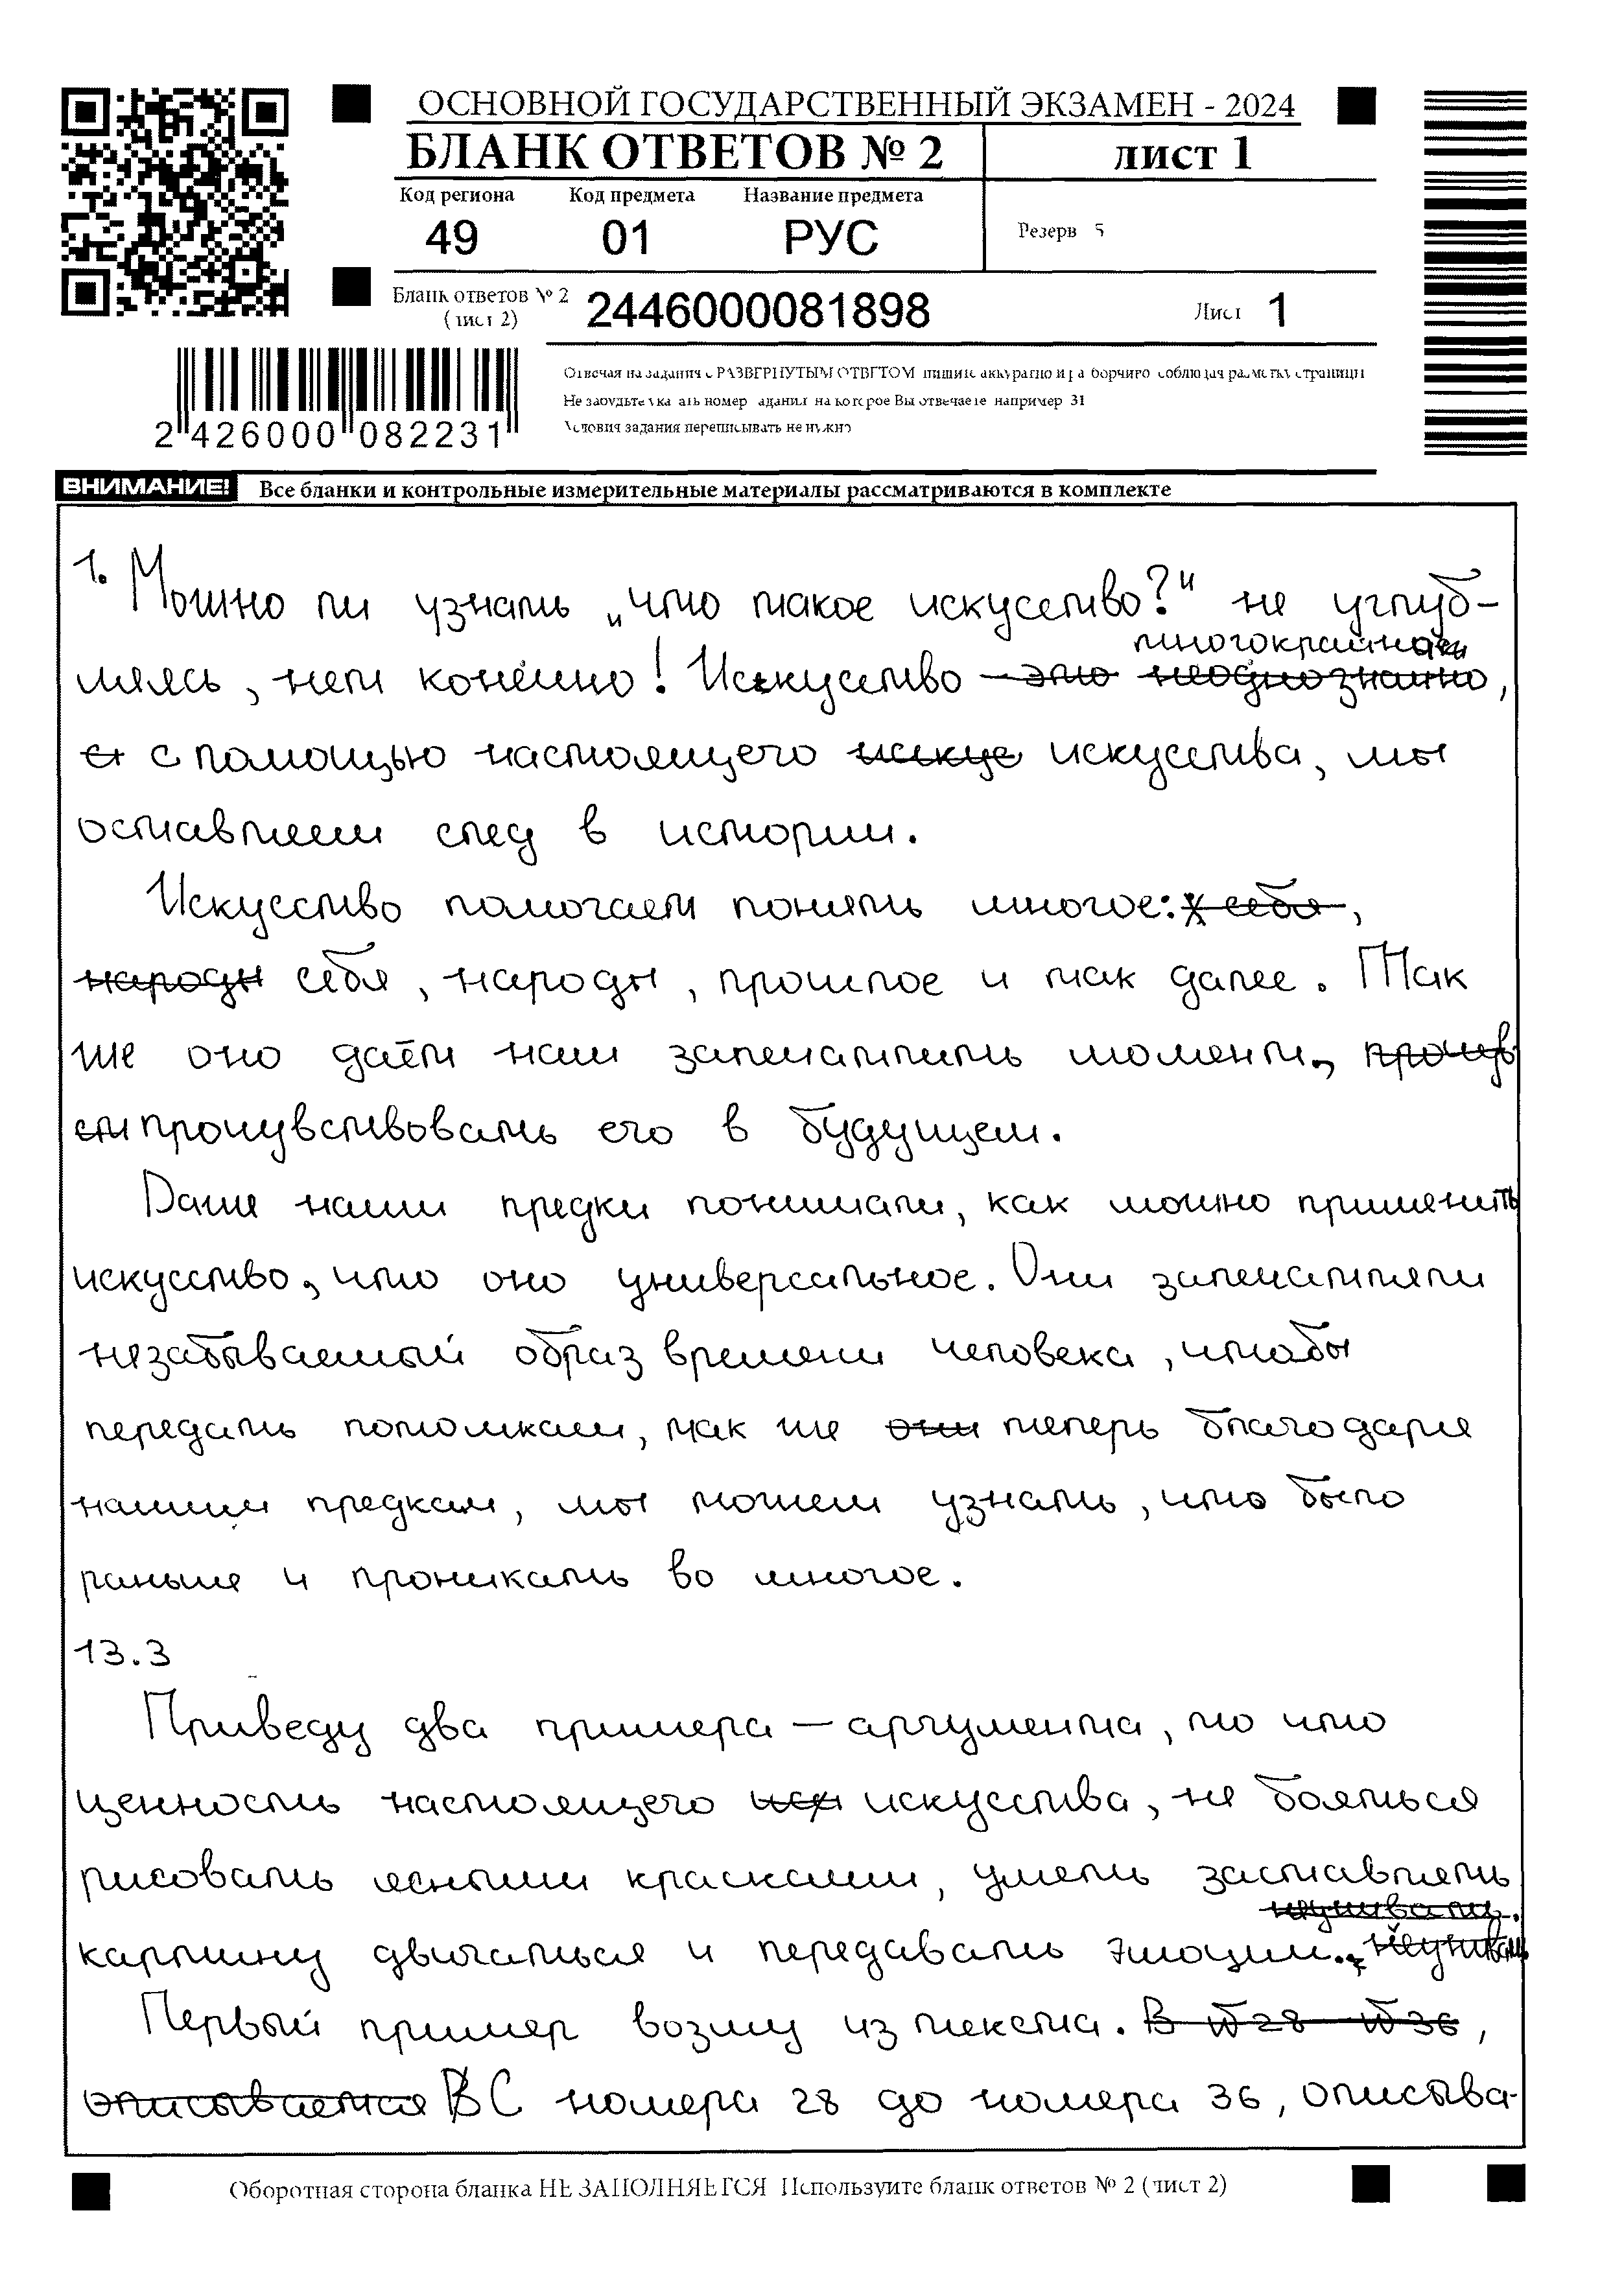 ОСНОВНОЙ ГОСУДАРСТВЕННЫЙ ЭКЗАМЕН - 2024
БЛАНК ОТВЕТОВ № 2
лист 1
Код региона Код предмета Название предмета
49 01 РУС
Резерв 5
Бланк ответов № 2
(лист 2)
2446000081898
Лист 1
2 426000 082231
Отвечая на задания с РАЗВЕРНУТЫМ ОТВЕТОМ пишите аккуратно и разборчиво соблюдая разметку страницы
Не забудьте указать номер задания на которое Вы отвечаете например 31
Условия задания переписывать не нужно
ВНИМАНИЕ! Все бланки и контрольные измерительные материалы рассматриваются в комплекте
1. Можно ли узнать „что такое искусство?" не углуб-
ляясь, нет конечно! Искусство это неоднозначно,
с помощью настоящего искус искусства, мы
оставляем след в истории.
Искусство помогает понять многое: себя,
народы себя, народы, прошлое и так далее. Так
же оно даём нам запечатлить момент,
прочувствовать его в будущем.
Даже наши предки понимали, как можно применить
искусство, что оно универсальное. Они запечатляли
незабываемый образ времени человека, чтобы
передать потомкам, так же они теперь благодаря
нашим предкам, мы можем узнать, что было
раньше и проникать во многое.
13.3
Приведу два примера – аргумента, то что
ценность настоящего искусства, не бояться
рисовать ясными красками, уметь заставлять
картину двигаться и передавать эмоции.
Первый пример возьму из текста. В №28 №36,
описывается В С номера 28 до номера 36, описыва-
Оборотная сторона бланка НЕ ЗАПОЛНЯЕТСЯ Используйте бланк ответов № 2 (лист 2)